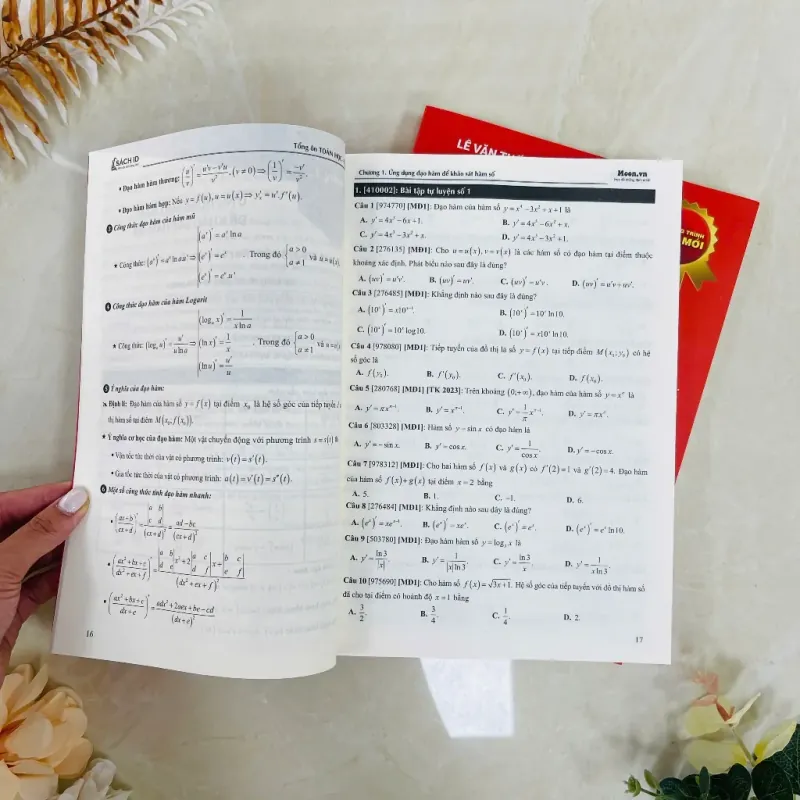 SÁCH ID
Tổng ôn TOÁN HỌC
• Đạo hàm hàm thương: (u/v)' = (u'v − v'u)/v², (v ≠ 0) ⇒ (1/v)' = −v'/v².
• Đạo hàm hàm hợp: Nếu y = f(u), u = u(x) ⇒ y'ₓ = u'.f'(u).
❸ Công thức đạo hàm của hàm mũ
★ Công thức: (aᵘ)' = aᵘ ln a.u' ⇒ { (aˣ)' = aˣ ln a; (eˣ)' = eˣ; (eᵘ)' = eᵘ.u' . Trong đó { a > 0; a ≠ 1 và u = u(x).
❹ Công thức đạo hàm của hàm Logarit
★ Công thức: (logₐ u)' = u'/(u ln a) ⇒ { (logₐ x)' = 1/(x ln a); (ln x)' = 1/x; (ln u)' = u'/u . Trong đó { a > 0; a ≠ 1 và u = u(
❺ Ý nghĩa của đạo hàm:
Định lí: Đạo hàm của hàm số y = f(x) tại điểm x₀ là hệ số góc của tiếp tuyến
thị hàm số tại điểm M(x₀; f(x₀)).
★ Ý nghĩa cơ học của đạo hàm: Một vật chuyển động với phương trình s = s(t)
• Vận tốc tức thời của vật có phương trình: v(t) = s'(t).
• Gia tốc tức thời của vật có phương trình: a(t) = v'(t) = s''(t).
❻ Một số công thức tính đạo hàm nhanh:
• ((ax + b)/(cx + d))' = |a b; c d|/(cx + d)² = (ad − bc)/(cx + d)²
• ((ax² + bx + c)/(dx² + ex + f))' = (|a b; d e|x² + 2|a c; d f|x + |b c; e f|)/(dx² + ex + f)²
• ((ax² + bx + c)/(dx + e))' = (adx² + 2aex + be − cd)/(dx + e)²
16
Chương 1. Ứng dụng đạo hàm để khảo sát hàm số
Moon.vn
1. [410002]: Bài tập tự luyện số 1
Câu 1 [974770] [MĐ1]: Đạo hàm của hàm số y = x⁴ − 3x² + x + 1 là
A. y' = 4x³ − 6x + 1. B. y' = 4x³ − 6x² + x.
C. y' = 4x³ − 3x² + x. D. y' = 4x³ − 3x + 1.
Câu 2 [276135] [MĐ1]: Cho u = u(x), v = v(x) là các hàm số có đạo hàm tại điểm thuộc
khoảng xác định. Phát biểu nào sau đây là đúng?
A. (uv)' = u'v'. B. (uv)' = uv'. C. (uv)' = u'v. D. (uv)' = u'v + uv'.
Câu 3 [276485] [MĐ1]: Khẳng định nào sau đây là đúng?
A. (10ˣ)' = x10ˣ⁻¹. B. (10ˣ)' = 10ˣ ln 10.
C. (10ˣ)' = 10ˣ log 10. D. (10ˣ)' = x10ˣ ln 10.
Câu 4 [978080] [MĐ1]: Tiếp tuyến của đồ thị là số y = f(x) tại tiếp điểm M(x₀; y₀) có hệ
số góc là
A. f(y₀). B. f'(y₀). C. f'(x₀). D. f(x₀).
Câu 5 [280768] [MĐ1] [TK 2023]: Trên khoảng (0; +∞), đạo hàm của hàm số y = x^π là
A. y' = πx^(π−1). B. y' = x^(π−1). C. y' = (1/π)x^(π−1). D. y' = πx^π.
Câu 6 [803328] [MĐ1]: Hàm số y = sin x có đạo hàm là
A. y' = −sin x. B. y' = cos x. C. y' = 1/cos x. D. y' = −cos x.
Câu 7 [978312] [MĐ1]: Cho hai hàm số f(x) và g(x) có f'(2) = 1 và g'(2) = 4. Đạo hàm
của hàm số f(x) + g(x) tại điểm x = 2 bằng
A. 5. B. 1. C. −1. D. 6.
Câu 8 [276484] [MĐ1]: Khẳng định nào sau đây là đúng?
A. (eˣ)' = xeˣ⁻¹. B. (eˣ)' = xeˣ. C. (eˣ)' = eˣ. D. (eˣ)' = eˣ ln 10.
Câu 9 [503780] [MĐ1]: Đạo hàm hàm số y = log₃ x là
A. y' = ln 3/|x|. B. y' = 1/(|x| ln 3). C. y' = ln 3/x. D. y' = 1/(x ln 3).
Câu 10 [975690] [MĐ1]: Cho hàm số f(x) = √(3x + 1). Hệ số góc của tiếp tuyến với đồ thị hàm số
đã cho tại điểm có hoành độ x = 1 bằng
A. 3/2. B. 3/4. C. 1/4. D. 2.
17
LÊ VĂN
TRÌNH
MỚI